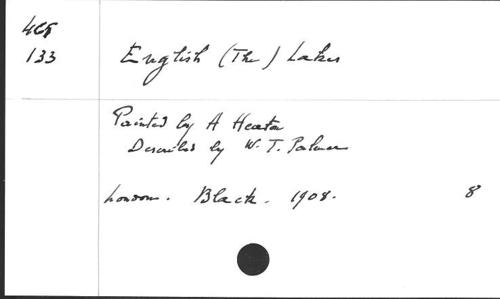 133 English (The) Lakes
Painted by A Heaton
Described by W. T. Palmer
London. Black. 1908. 8